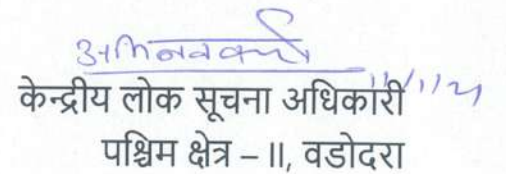 11/11/21
केन्द्रीय लोक सूचना अधिकारी
पश्चिम क्षेत्र – II, वडोदरा